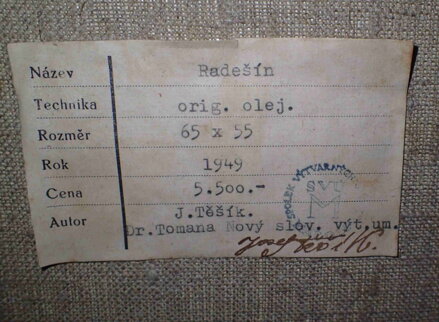 Název Radešín
Technika orig. olej.
Rozměr 65 x 55
Rok 1949
Cena 5.500.-
Autor J.Těšík.
Dr. Tomana Nový slov. výt.um.
SPOLEK VÝTVARN
SVU
M
Josef Těšík